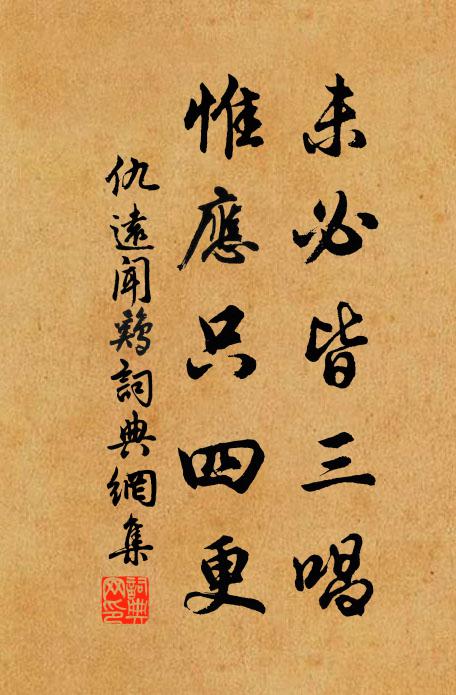 未必皆三唱
惟應只四更
仇遠聞鷄詞典網集
詞典網印